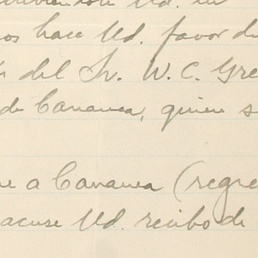 Ud. en
hace Ud. favor de
del Sr. W. C. Gre
de Cananea, quien s
e a Cananea (regre
acuse Ud. recibo de